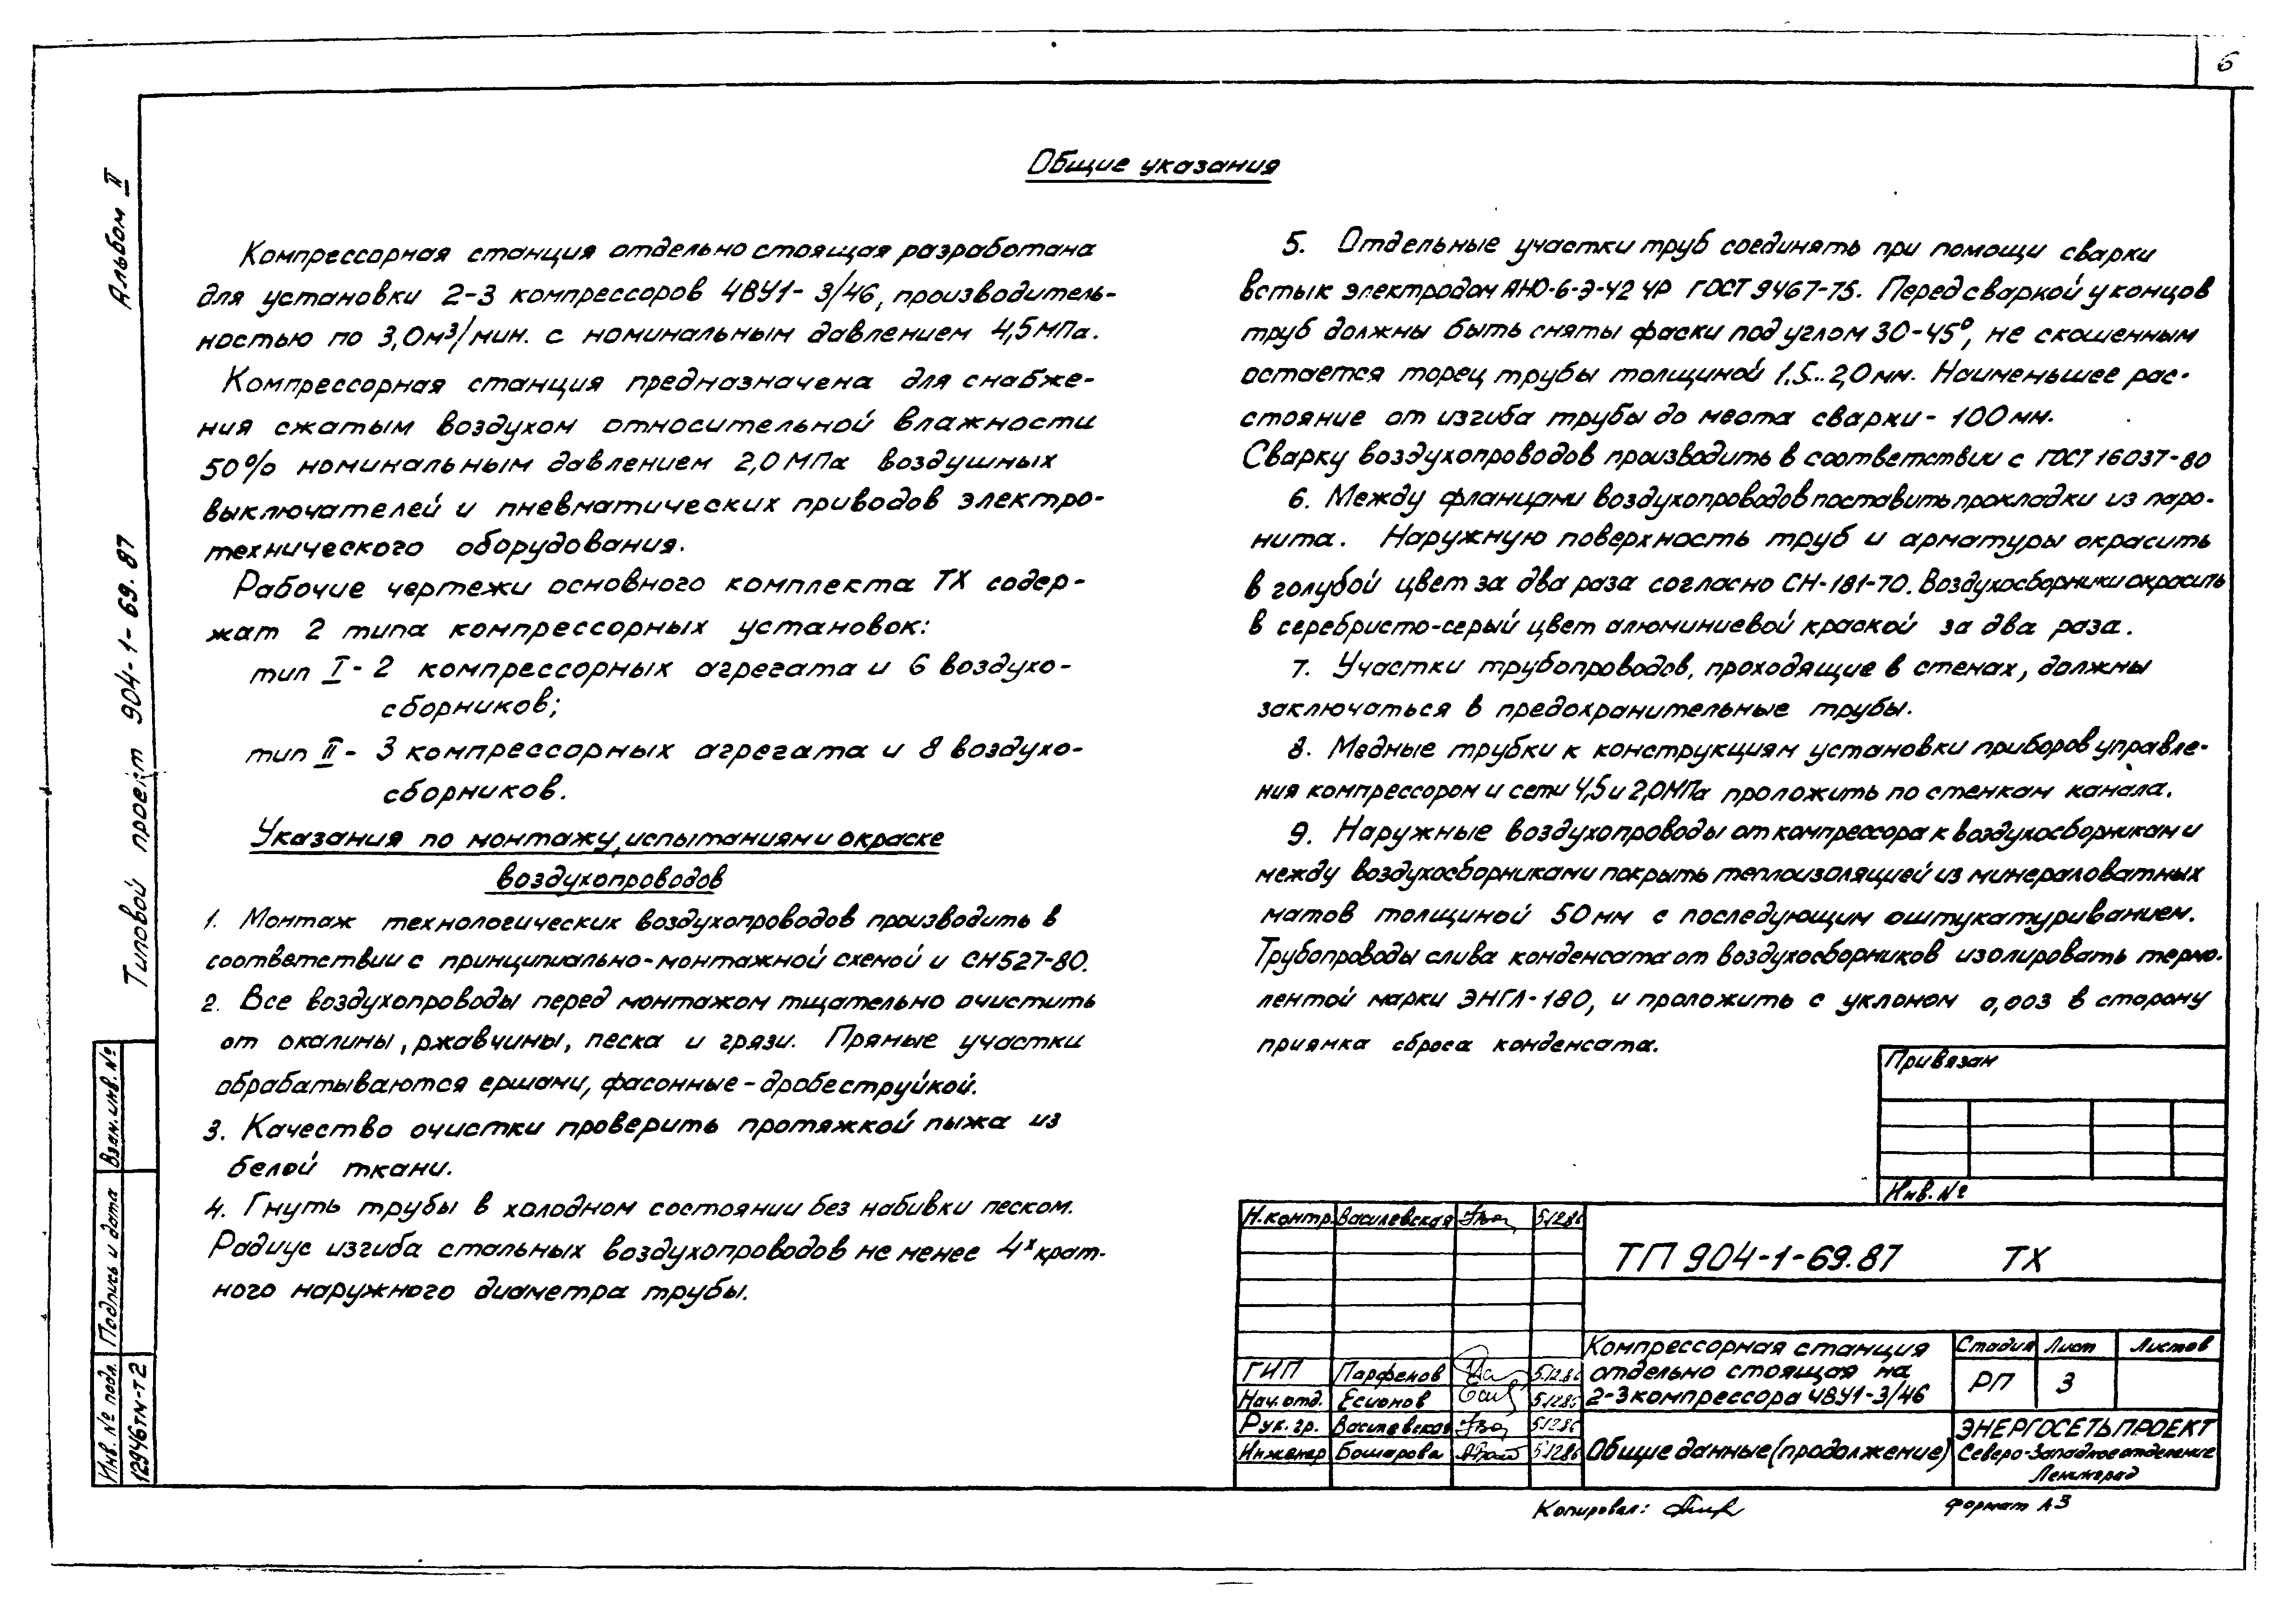 6
Альбом II
Типовой проект 904-1-69.87
Общие указания
Компрессорная станция отдельно стоящая разработана
для установки 2-3 компрессоров 4ВУ1-3/46, производитель-
ностью по 3,0м³/мин. с номинальным давлением 4,5МПа.
Компрессорная станция предназначена для снабже-
ния сжатым воздухом относительной влажности
50% номинальным давлением 2,0 МПа воздушных
выключателей и пневматических приводов электро-
технического оборудования.
Рабочие чертежи основного комплекта ТХ содер-
жат 2 типа компрессорных установок:
тип I - 2 компрессорных агрегата и 6 воздухо-
сборников;
тип II - 3 компрессорных агрегата и 8 воздухо-
сборников.
Указания по монтажу, испытаниям и окраске
воздухопроводов
1. Монтаж технологических воздухопроводов производить в
соответствии с принципиально-монтажной схемой и СН527-80.
2. Все воздухопроводы перед монтажом тщательно очистить
от окалины, ржавчины, песка и грязи. Прямые участки
обрабатываются ершами, фасонные - дробеструйкой.
3. Качество очистки проверить протяжкой пыжа из
белой ткани.
4. Гнуть трубы в холодном состоянии без набивки песком.
Радиус изгиба стальных воздухопроводов не менее 4х крат-
ного наружного диаметра трубы.
5. Отдельные участки труб соединять при помощи сварки
встык электродом АНО-6-Э-42 ЧР ГОСТ 9467-75. Перед сваркой у концов
труб должны быть сняты фаски под углом 30-45°, не скошенным
остается торец трубы толщиной 1,5...2,0мм. Наименьшее рас-
стояние от изгиба трубы до места сварки - 100мм.
Сварку воздухопроводов производить в соответствии с ГОСТ 16037-80
6. Между фланцами воздухопроводов поставить прокладки из паро-
нита. Наружную поверхность труб и арматуры окрасить
в голубой цвет за два раза согласно СН-181-70. Воздухосборники окрасить
в серебристо-серый цвет алюминиевой краской за два раза.
7. Участки трубопроводов, проходящие в стенах, должны
заключаться в предохранительные трубы.
8. Медные трубки к конструкциям установки приборов управле-
ния компрессором и сети 4,5 и 2,0МПа проложить по стенкам канала.
9. Наружные воздухопроводы от компрессора к воздухосборникам и
между воздухосборниками покрыть теплоизоляцией из минераловатных
матов толщиной 50мм с последующим оштукатуриванием.
Трубопроводы слива конденсата от воздухосборников изолировать термо-
лентой марки ЭНГЛ-180, и проложить с уклоном 0,003 в сторону
приямка сброса конденсата.
Привязан
Инв. №
Н.контр. Василевская 5.12.86
ТП 904-1-69.87 ТХ
ГИП Парфенов 5.12.86
Нач.отд. Есионов 5.12.86
Рук.гр. Василевская 5.12.86
Инженер Бошарова 5.12.86
Компрессорная станция
отдельно стоящая на
2-3 компрессора 4ВУ1-3/46
Стадия Лист Листов
РП 3
Общие данные (продолжение)
ЭНЕРГОСЕТЬПРОЕКТ
Северо-Западное отделение
Ленинград
Копировал:
Формат А3
Взам. инв. №
Подпись и дата
Инв. № подл.
12946тм-т2